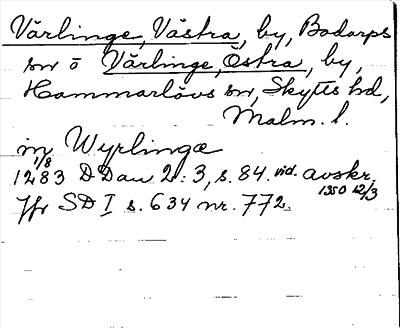 Värlinge, Västra, by, Bodarps
sn o Värlinge, Östra, by,
Hammarlövs sn, Skytts hd,
Malm. l.
in Wyrlingæ
1283 1/8 DDan 2:3, s. 84. vid. avskr.
1350 12/3
Jfr SD I s. 634 nr. 772.